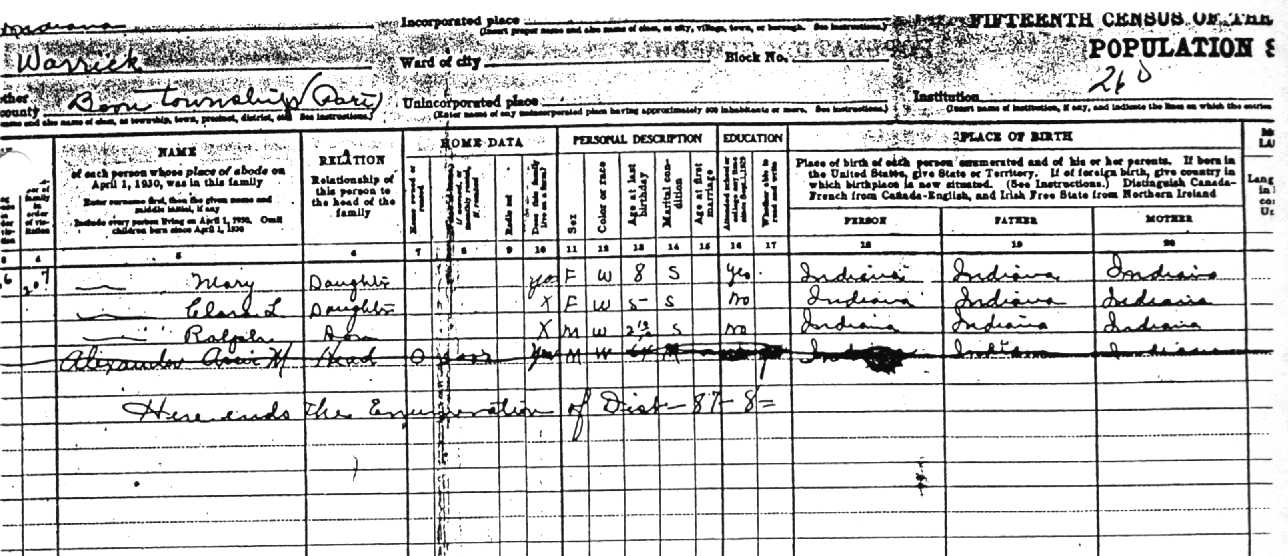 Indiana
Incorporated place
(Insert proper name and also name of class, as city, village, town, or borough. See instructions.)
FIFTEENTH CENSUS OF THE
Warrick
Ward of city
Block No.
POPULATION S
26 D
other
county
Boon township (Part)
Unincorporated place
(Enter name of any unincorporated place having approximately 500 inhabitants or more. See instructions.)
Institution
(Insert name of institution, if any, and indicate the lines on which the entries
name and also name of class, as township, town, precinct, district, etc. See instructions.)
NAME
of each person whose place of abode on
April 1, 1930, was in this family
Enter surname first, then the given name and
middle initial, if any
Include every person living on April 1, 1930. Omit
children born since April 1, 1930
RELATION
Relationship of
this person to
the head of the
family
HOME DATA
Home owned or rented
Radio set
Does this family live on a farm?
PERSONAL DESCRIPTION
Sex
Color or race
Age at last birthday
Marital condition
Age at first marriage
EDUCATION
Attended school or college any time since Sept. 1, 1929
Whether able to read and write
PLACE OF BIRTH
Place of birth of each person enumerated and of his or her parents. If born in
the United States, give State or Territory. If of foreign birth, give country in
which birthplace is now situated. (See Instructions.) Distinguish Canada-
French from Canada-English, and Irish Free State from Northern Ireland
PERSON FATHER MOTHER
4 5 6 7 8 9 10 11 12 13 14 15 16 17 18 19 20
207 Mary Daughter yes F W 8 S yes Indiana Indiana Indiana
Clara L Daughter X F W 5 S no Indiana Indiana Indiana
Ralph Son X M W S no Indiana Indiana Indiana
Alexander Head O yes M W Indiana
Here ends the Enumeration of Dist - 87 - 8 =